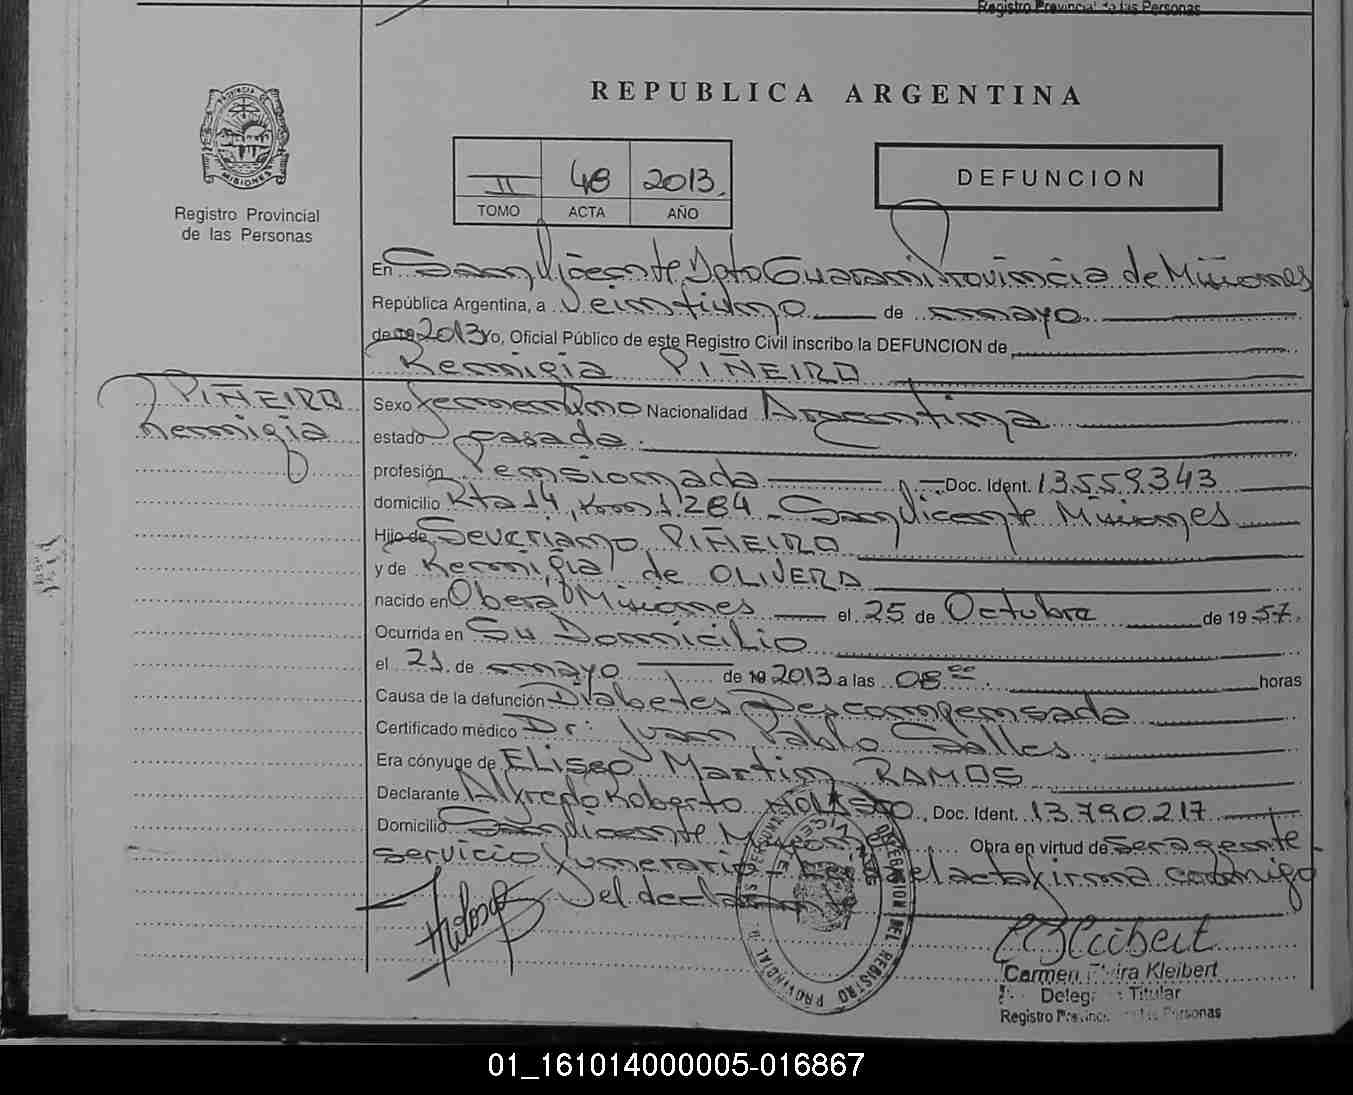 Registro Provincial de las Personas
REPUBLICA ARGENTINA
PROVINCIA DE
MISIONES
Registro Provincial
de las Personas
II 48 2013
TOMO ACTA AÑO
DEFUNCION
En San Vicente Dpto Guarani Provincia de Misiones
República Argentina, a Veintiuno de mayo
de 19 2013 yo, Oficial Público de este Registro Civil inscribo la DEFUNCION de
Remigia PIÑEIRO
PIÑEIRO
Remigia
Sexo femenino Nacionalidad Argentina
estado casada
profesión Pensionada Doc. Ident. 13.559.343
domicilio Rta 14, Km 1.284 - San Vicente Misiones
Hijo de Severiano PIÑEIRO
y de Remigia de OLIVERA
nacido en Obera Misiones el 25 de Octubre de 1957.
Ocurrida en Su Domicilio
el 21 de mayo de 19 2013 a las 08 00 horas
Causa de la defunción Diabetes Descompensada
Certificado médico Dr. Juan Pablo Salles
Era cónyuge de Eliseo Martin RAMOS
Declarante Alfredo Roberto Doc. Ident. 13.790.217
Domicilio San Vicente Obra en virtud de ser agente
servicio funerario - el acta firma conmigo
el declarante
CBKleibert
Carmen Kleibert
Titular
Registro Personas
01_161014000005-016867